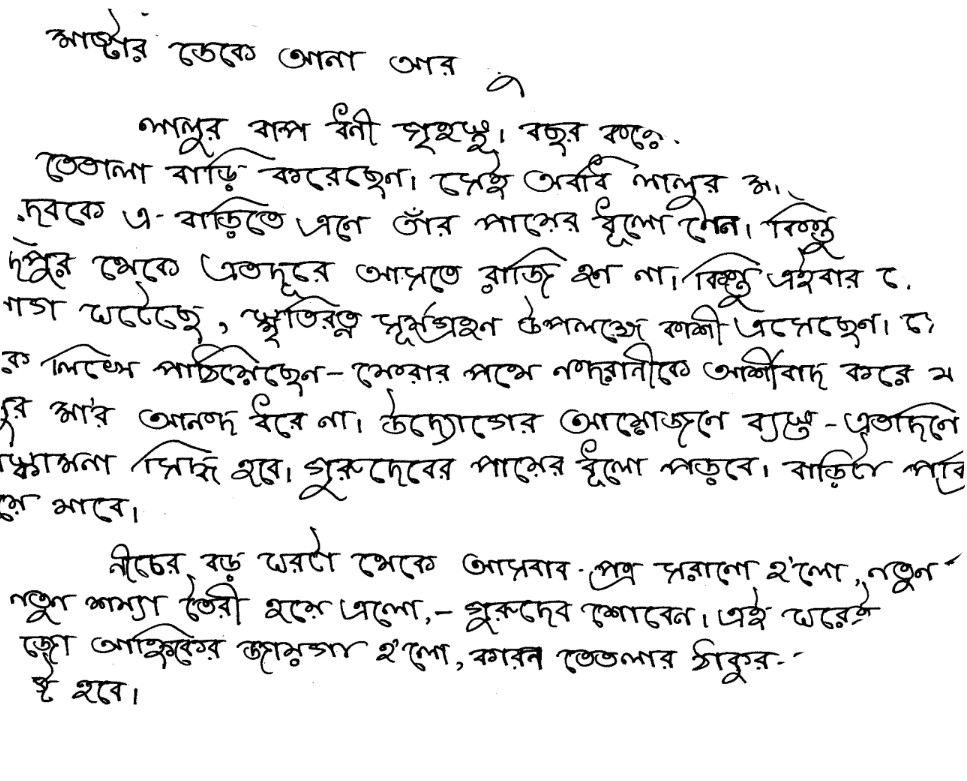 মাষ্টার ডেকে আনা আর
লালুর বাপ ধনী গৃহস্থ। বছর কয়ে
তেতালা বাড়ি করেছেন। সেই অবধি লালুর মা
দেবকে এ-বাড়িতে এনে তাঁর পায়ের ধূলো নেন। কিন্তু
দপুর থেকে এতদূরে আসতে রাজি হন না। কিন্তু এইবার সে
যোগ ঘটেছে, স্মৃতিরত্ন সূর্যগ্রহন উপলক্ষে কাশী এসেছেন। সে
কে লিখে পাঠিয়েছেন- ফেরার পথে নন্দরানীকে আর্শীবাদ করে য
লুর মা'র আনন্দ ধরে না। উদ্যোগের আয়োজনে ব্যস্ত - এতদিনে
স্কামনা সিদ্ধ হবে। গুরুদেবের পায়ের ধূলো পড়বে। বাড়িটা পবি
য়ে যাবে।
নীচের বড় ঘরটা থেকে আসবাব-পত্র সরানো হ'লো, নতুন
নতুন শয্যা তৈরী হয়ে এলো,- গুরুদেব শোবেন। এই ঘরেই
জো আহ্নিকের জায়গা হ'লো, কারন তেতলার ঠাকুর-
ষ্ট হবে।